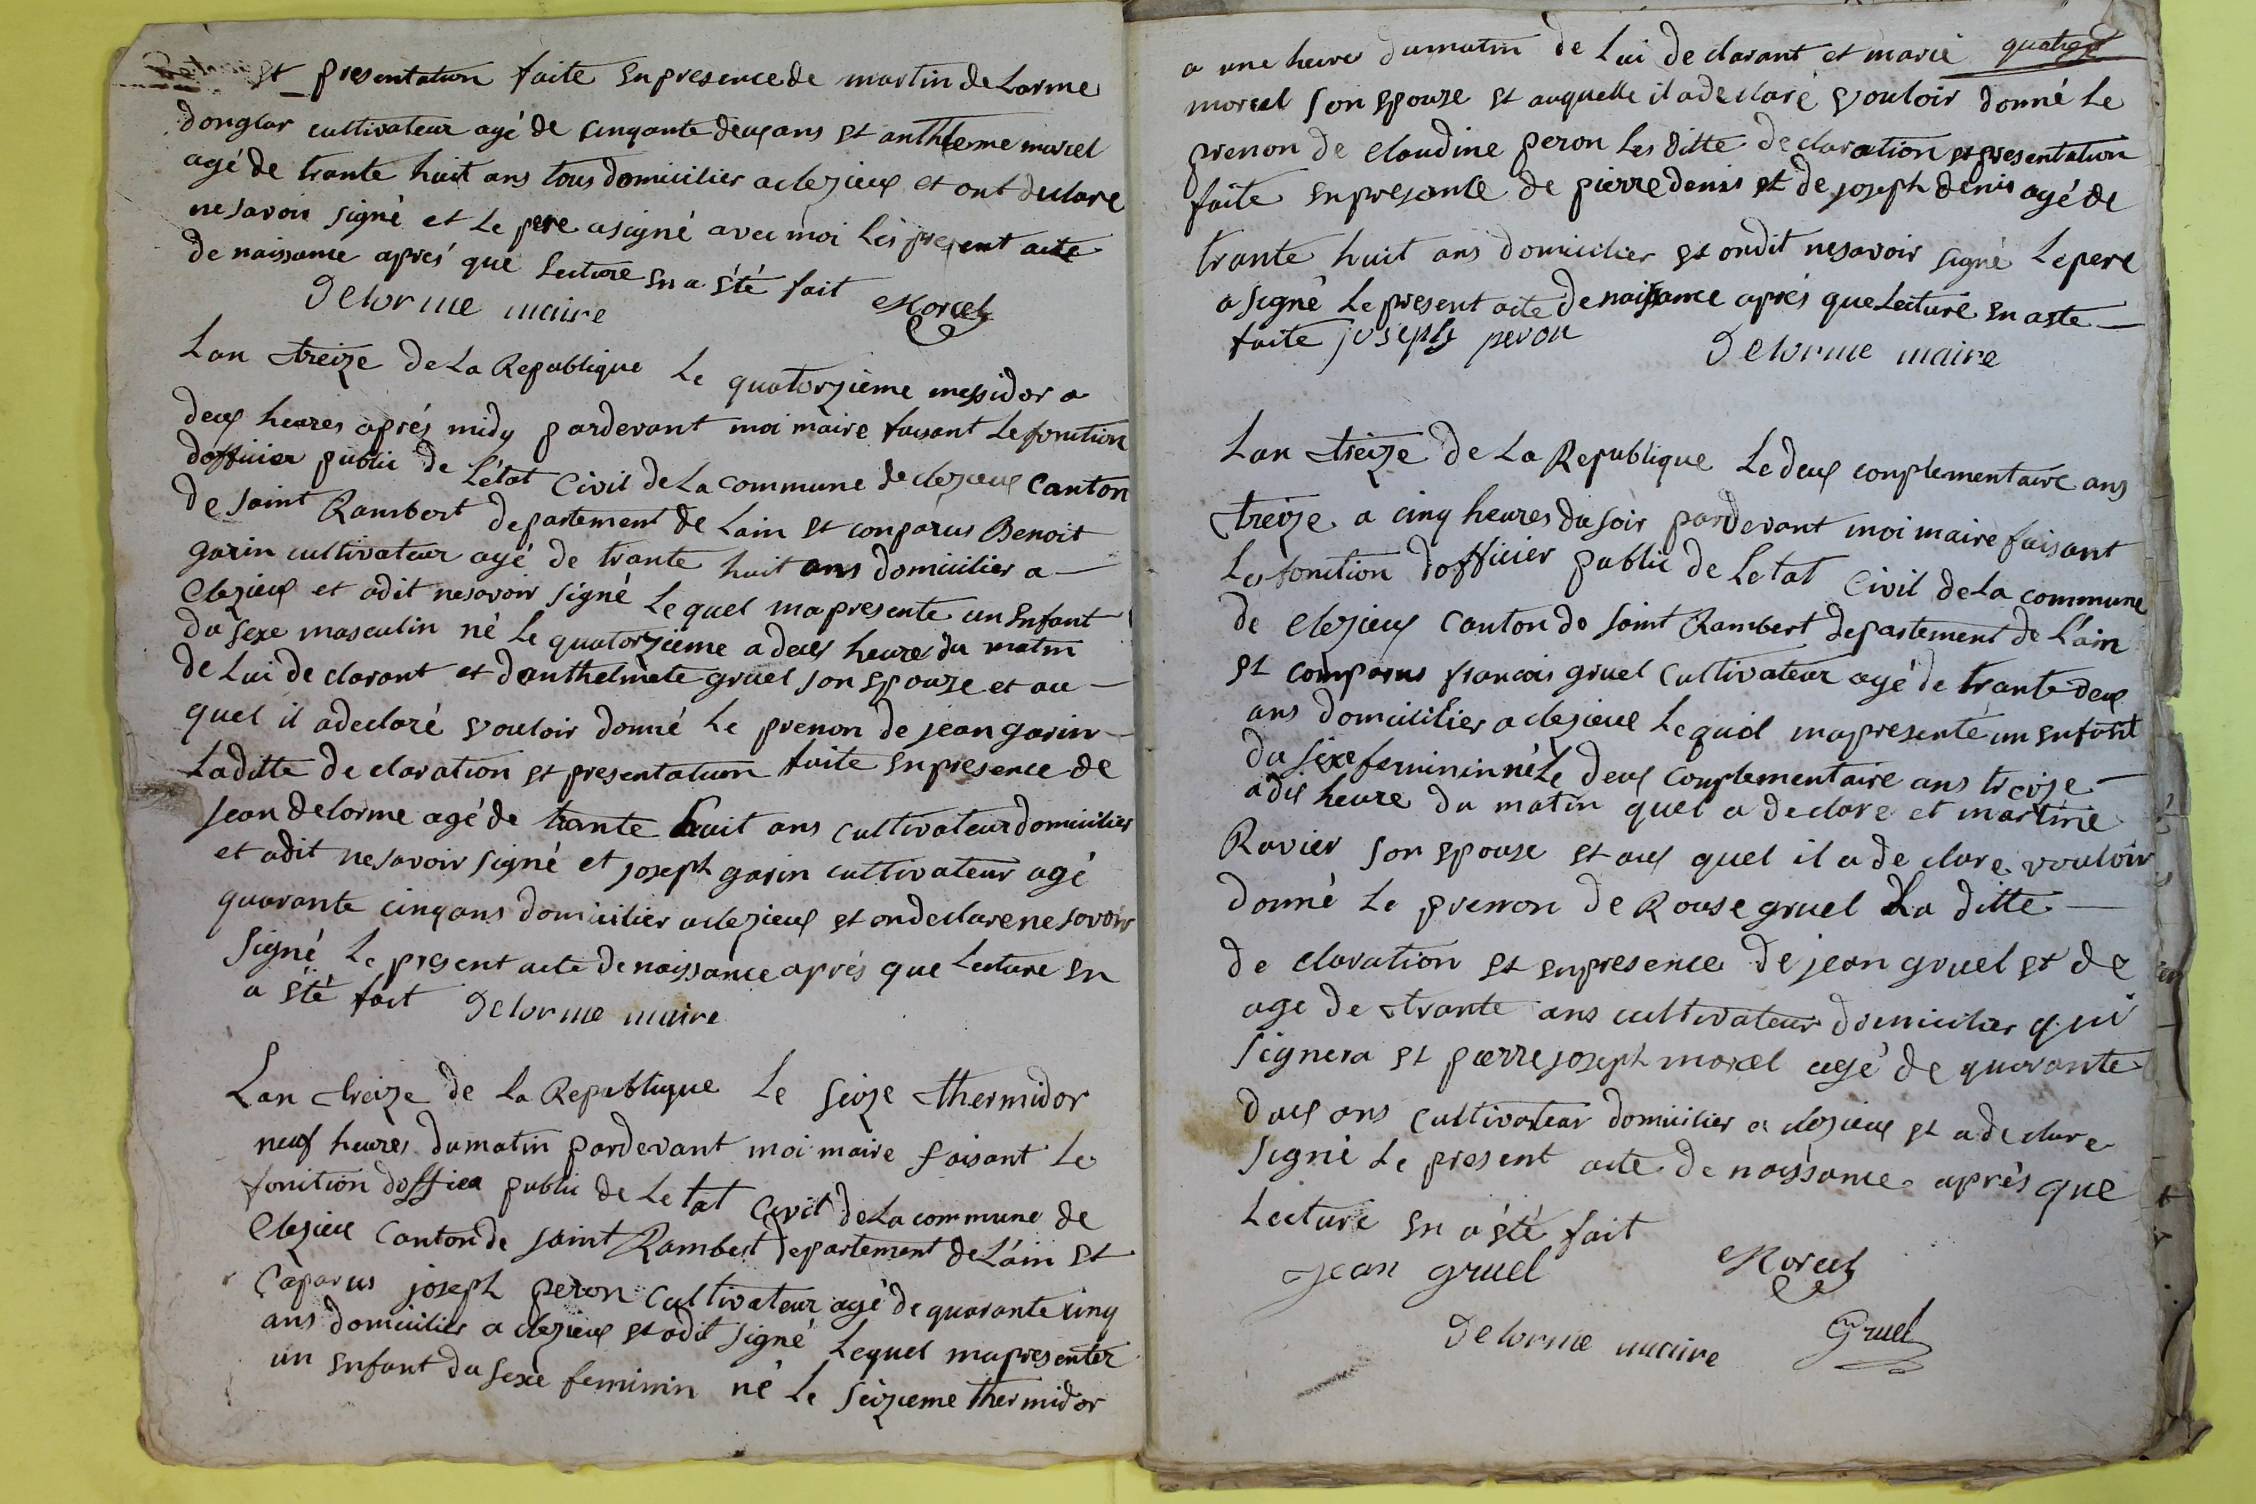 et presentation faite en presence de martin delorme
donglar cultivateur agé de cinqante deux ans et anthleme morel
agé de trante huit ans tous domicilier a clezieux et ont declare
ne savoir signé et le pere a signé avec moi les present acte
de naissance aprés que lecture en a été fait
Delorme maire Morcel
Lan treize de la Republique le quatorzieme messidor a
deux heures aprés midy pardevant moi maire faisant le fonition
dofficier public de létat Civil de la commune de clezieux Canton
de saint Rambert departement de Lain et conparus Benoit
garin cultivateur agé de trante huit ans domicilier a
Clezieux et adit ne savoir signé le quel ma presente un enfant
du sexe masculin né le quatorzieme a deux heure du matin
de lui declarant et danthelmete gruel son epouze et au
quel il a declaré vouloir donné le prenon de jean garin
Laditte declaration et presentation faite en presence de
jean delorme agé de trante huit ans cultivateur domicilier
et adit ne savoir signé et joseph garin cultivateur agé
quarante cinq ans domicilier a clezieux et on declare ne savoir
signé le present acte de naissance aprés que lecture en
a été fait Delorme maire
Lan treize de la Republique le seize thermidor
neuf heures du matin pardevant moi maire faisant le
fonition doffiea public de letat Civil de la commune de
Clezieux Canton de saint Rambert departement de Lain et
Caparus joseph peron Cultivateur agé de quarante cinq
ans domicilier a clezieux et adit signé lequel ma presenter
un enfant du sexe feminin né le seizieme thermidor
a une heure du matin de lui declarant et marie
morcel son epouze et auquelle il a declaré vouloir donné le
prenon de claudine peron les ditte declaration et presentation
faite en presance de pierre denis et de joseph denis agé de
trante huit ans domicilier et ondit ne savoir signé le pere
a signé le present acte de naissance aprés que lecture en aete
faite joseph peron Delorme maire
Lan treize de la Republique le deux complementaire ans
treize a cinq heures du soir pardevant moi maire faisant
les fonition dofficier public de letat Civil de la commune
de clezieux Canton de saint Rambert departement de Lain
et comparus francois gruel Cultivateur agé de trante deux
ans domicililier a clezieux lequel ma presenté un enfant
du sexe feminin né le deux complementaire ans treize
a dix heure du matin quel a declare et martine
Ravier son epouze et aux quel il a declare vouloir
donné le prenon de Rouse gruel La ditte
declaration et en presence de jean gruel et de
age de trante ans cultivateur domicilier qui
signera et pierre joseph morcel agé de quarante
deux ans cultivateur domicilier a clezieux et a declare
signé le present acte de naissance aprés que
lecture en a été fait
jean gruel Morcel
Delorme maire Gruel